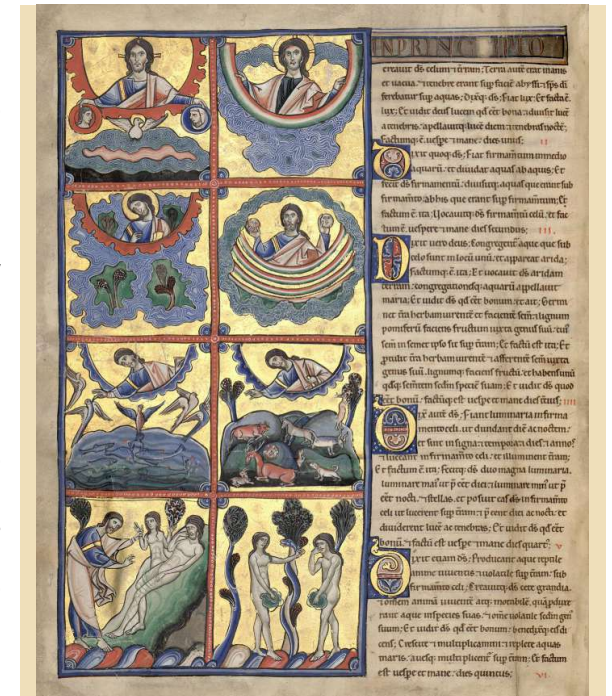 INPRINCIPIO
creauit dṡ celum ⁊ t̄ram; Terra autē erat inanis
et uacua. ⁊ tenebre erant sup̄ faciē abyssi; ⁊ sp̄s di
ferebatur sup̄ aquas; Dixitq; ds̄; Fiat lux; Et facta ē
lux; Et uidit deus lucem qd̄ eēt bona; ⁊ diuisit lucē
a tenebris; apellauitq; lucē diem; ⁊ tenebras noctē;
Factumq; ē uespe ⁊ mane; dies unus; II
Dixit quoq; ds̄; Fiat firmam̄tum in medio
aquarū; et diuidat aquas ab aquis; Et
fecit ds̄ firmamentū; diuisitq; aquas que erant sub
firmam̄to, ab his que erant sup̄ firmam̄tum; Et
factum ē ita; Uocauitq; ds̄ firmam̄tū celū; et fac
tum ē uespere ⁊ mane dies secundus; III.
Dixit uero deus; Congregent̄ aque que sub
celo sunt in locū unū; et appareat arida;
Factumq; ē ita; Et uocauit ds̄ aridam
terram; congregationesq; aquarū appellauit
maria; Et uidit ds̄ qd̄ eēt bonum; et ait; Germi
net t̄ra herbam uirentē et facientē sem̄; ⁊ lignum
pomiferū faciens fructum iuxta genus suū, cui᾿
sem̄ in semet ipso sit sup̄ t̄ram; Et factū est ita; Et
p̄tulit t̄ra herbam uirentē ⁊ afferentē sem̄ iuxta
genus suū. lignumq; faciens fructū; et habens unū
qdq; sem̄tem sed̄m speciē suam; Et uidit ds̄ quod
eēt bonū; factūq; est uespe et mane dies t̄cius; IIII
Dixit autē ds̄; Fiant luminaria in firma
mento celi. ut diuidant diē ac noctem;
et sint in signa; ⁊ tempora; ⁊ dies; ⁊ annos;
⁊ luceant in firmam̄to celi; et illuminent t̄ram;
Et factum ē ita; fecitq; ds̄ duo magna luminaria.
luminare mai᾿ ut p̄ eēt diei; ⁊ luminare min᾿ ut p̄
eēt nocti; ⁊ stellas. et posuit eas ds̄ in firmam̄to
celi ut lucerent sup̄ t̄ram; ⁊ p̄ eent diei ac nocti; et
diuiderent lucē ac tenebras; Et uidit ds̄ qd̄ eēt
bonū; ⁊ factū est uespe ⁊ mane dies quart᾿; V
Dixit etiam ds̄; Producant aque reptile
anime uiuentis ⁊ uolatile sup̄ t̄ram; sub
firmam̄to celi; Creauitq; ds̄ cete grandia.
⁊ omem animā uiuentē atq; motabilē, quā p̄dux
rant aque in species suas. ⁊ ome uolatile sed̄m gen᾿
suum; Et uidit ds̄ qd̄ eēt bonum; benedixitq; eis di
cens; Crescite ⁊ multiplicamini; ⁊ replete aquas
maris. auesq; multiplicent᾿ sup̄ t̄ram; Et factum
est uespe et mane. dies quintus; VI.